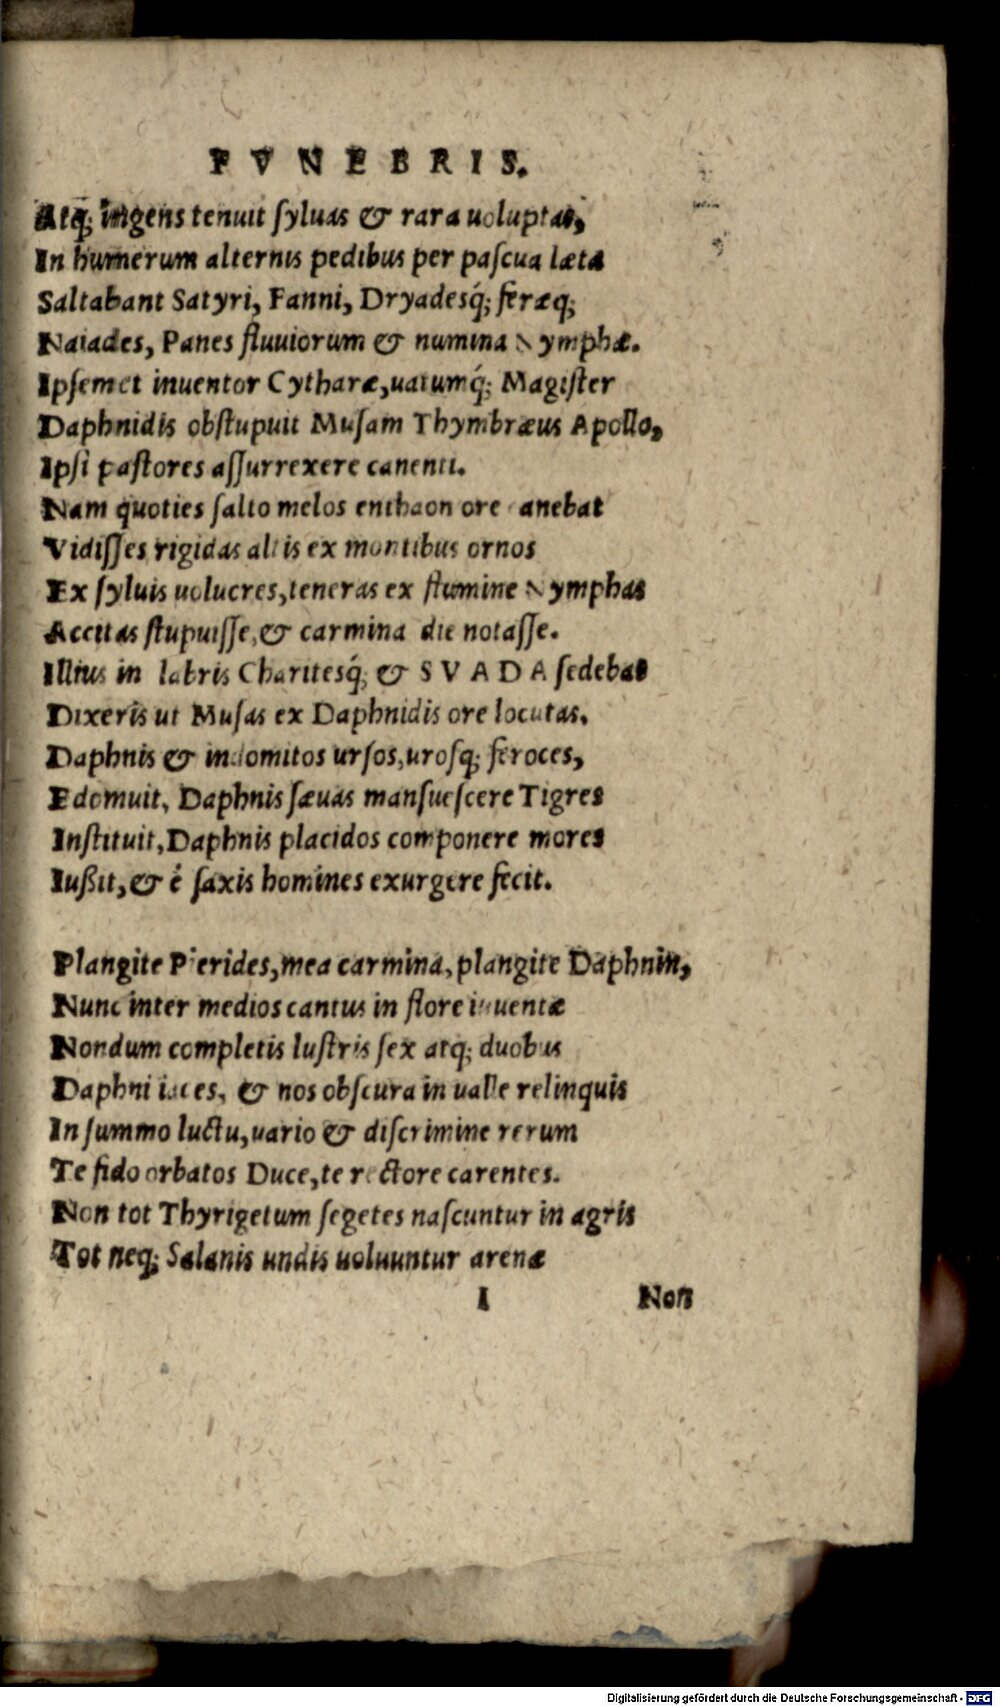 FVNEBRIS.
Atq; ingens tenuit syluas & rara uoluptas,
In humerum alternis pedibus per pascua læta
Saltabant Satyri, Fanni, Dryadesq́; feræq;
Naiades, Panes fluuiorum & numina Nymphæ.
Ipsemet inuentor Cytharæ, uatumq́; Magister
Daphnidis obstupuit Musam Thymbræus Apollo,
Ipsi pastores assurrexere canenti.
Nam quoties salto melos entheon ore canebat
Vidisses rigidas altis ex montibus ornos
Ex syluis uolucres, teneras ex flumine Nymphas
Accitas stupuisse, & carmina diu notasse.
Illius in labris Charitesq́; & SVADA sedebat
Dixeris ut Musas ex Daphnidis ore locutas.
Daphnis & indomitos ursos, urosq; feroces,
Edomuit, Daphnis sæuas mansuescere Tigres
Instituit, Daphnis placidos componere mores
Iußit, & è saxis homines exurgere fecit.
Plangite Pierides, mea carmina, plangite Daphnin,
Nunc inter medios cantus in flore iuuentæ
Nondum completis lustris sex atq; duobus
Daphni iaces, & nos obscura in ualle relinquis
In summo luctu, uario & discrimine rerum
Te fido orbatos Duce, te rectore carentes.
Non tot Thyrigetum segetes nascuntur in agris
Tot neq; Salanis undis uoluuntur arenæ
I Non
Digitalisierung gefördert durch die Deutsche Forschungsgemeinschaft - DFG